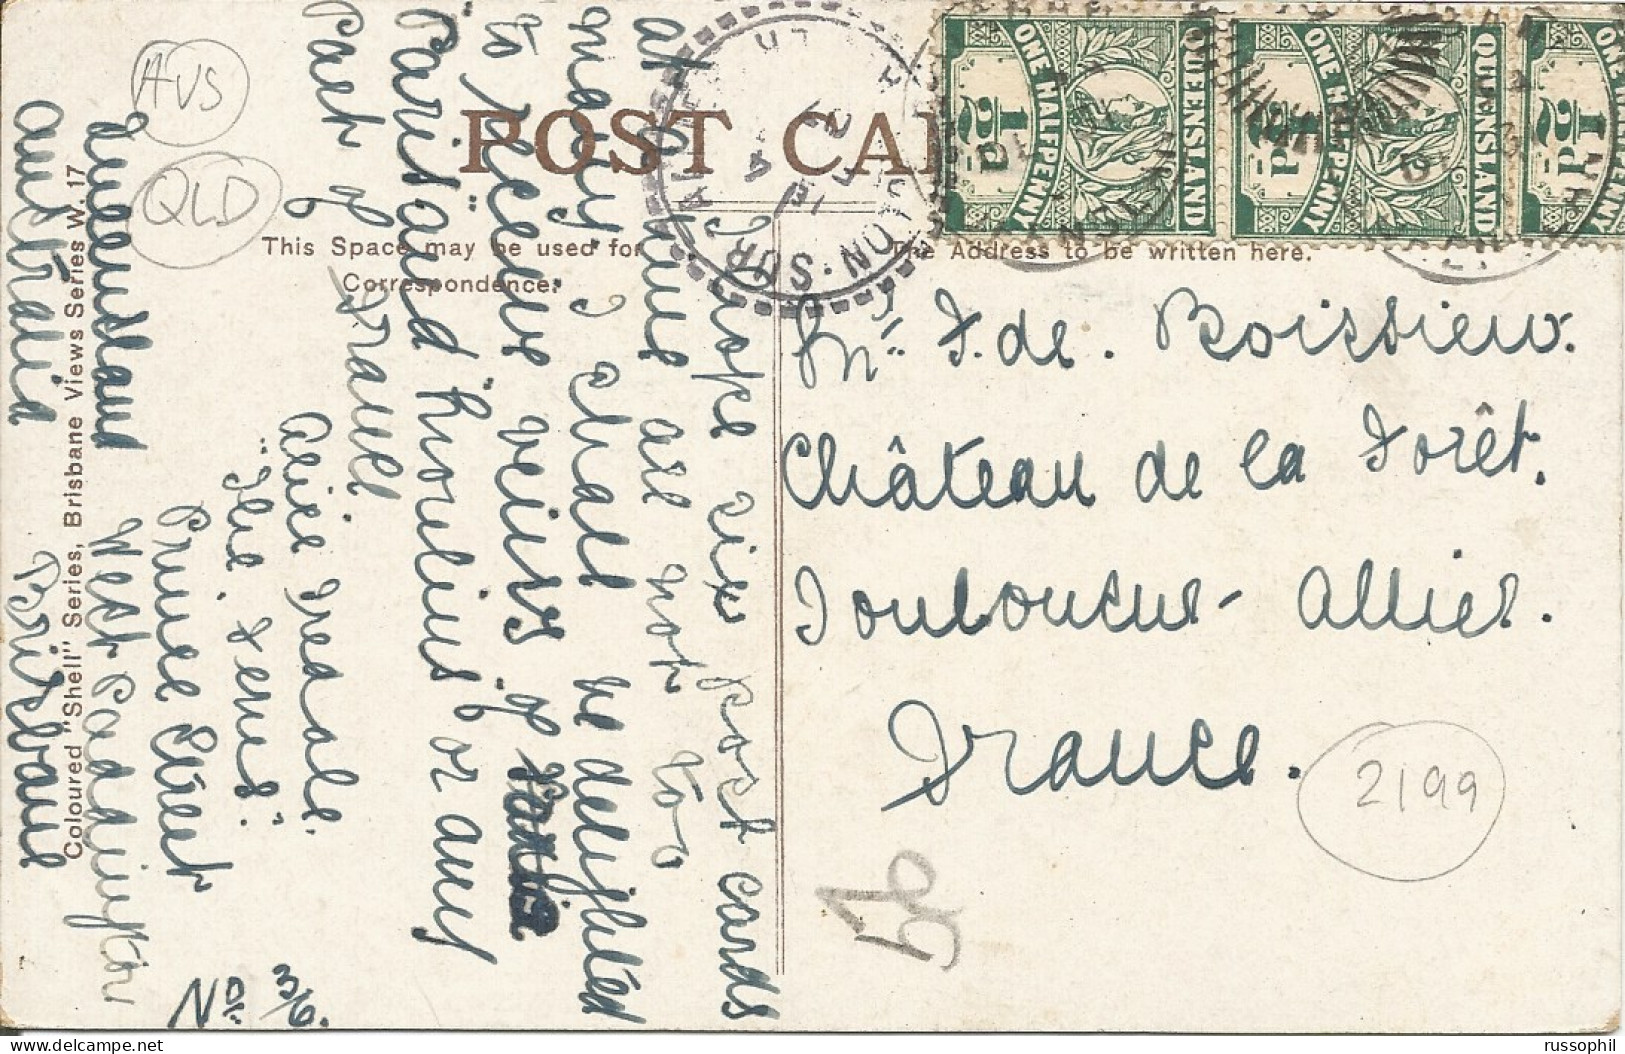 POST CAR
This Space may be used for
Correspondence.
The Address to be written here.
Coloured "Shell" Series, Brisbane Views Series W. 17
QUEENSLAND
ONE HALFPENNY
½d
QUEENSLAND
ONE HALFPENNY
½d
QUEENSLAND
ONE HALFPENNY
½d
AUS
QLD
I hope six post cards
at time are not too
many. I shall be delighted
to receive veiws of
Paris and Moulins or any
part of
France
Alice Treadale.
"The Ferns"
Prince Street
West Paddington
Brisbane
Queensland
Australia
No 3/6.
Mr. F. de. Boissieu.
Château de la Forêt.
Toulon sur - Allier.
France.
2199